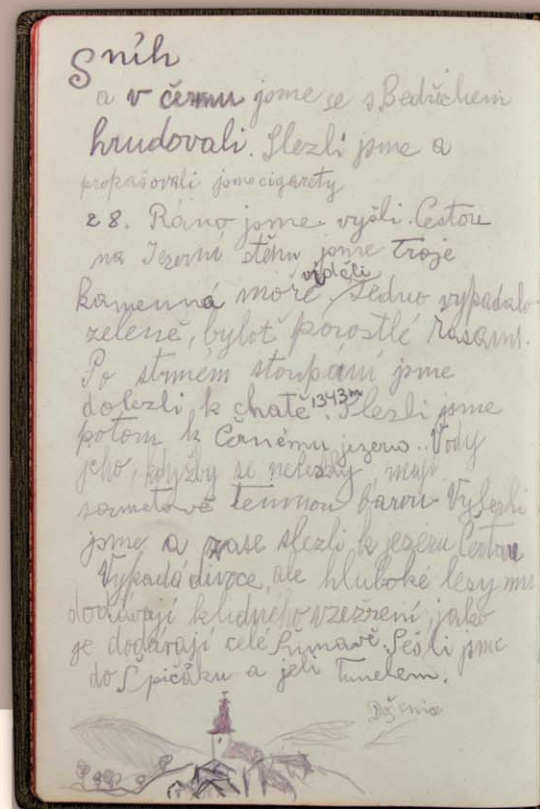 Sníh
a v černu jsme se s Bedřichem
hrudovali. Slezli jsme a
propašovali jsme cigarety
28. Ráno jsme vyšli. Cestou
na Jezerní stěnu jsme troje
viděli
kamenná moře. Jedno vypadalo
zeleně, byloť porostlé řasami.
Po strmém stoupání jsme
dolezli k chatě 1343m. Slezli jsme
potom k Černému jezeru. Vody
jeho, kdyžby se neleskly, mají
sametově temnou barvu. Vylezli
jsme a zase slezli k jezeru Čertovu
Vypadá divoce, ale hluboké lesy mu
dodávají klidného vzezření, jako
je dodávají celé Šumavě. Sešli jsme
do Špičáku a jeli tunelem.